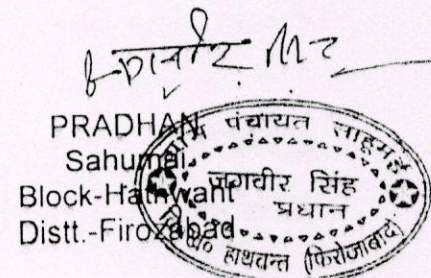 PRADHAN
Sahumai
Block-Hathwant
Distt.-Firozabad
पंचायत साहूमई
जगवीर सिंह
प्रधान
हाथवन्त (फिरोजाबाद)